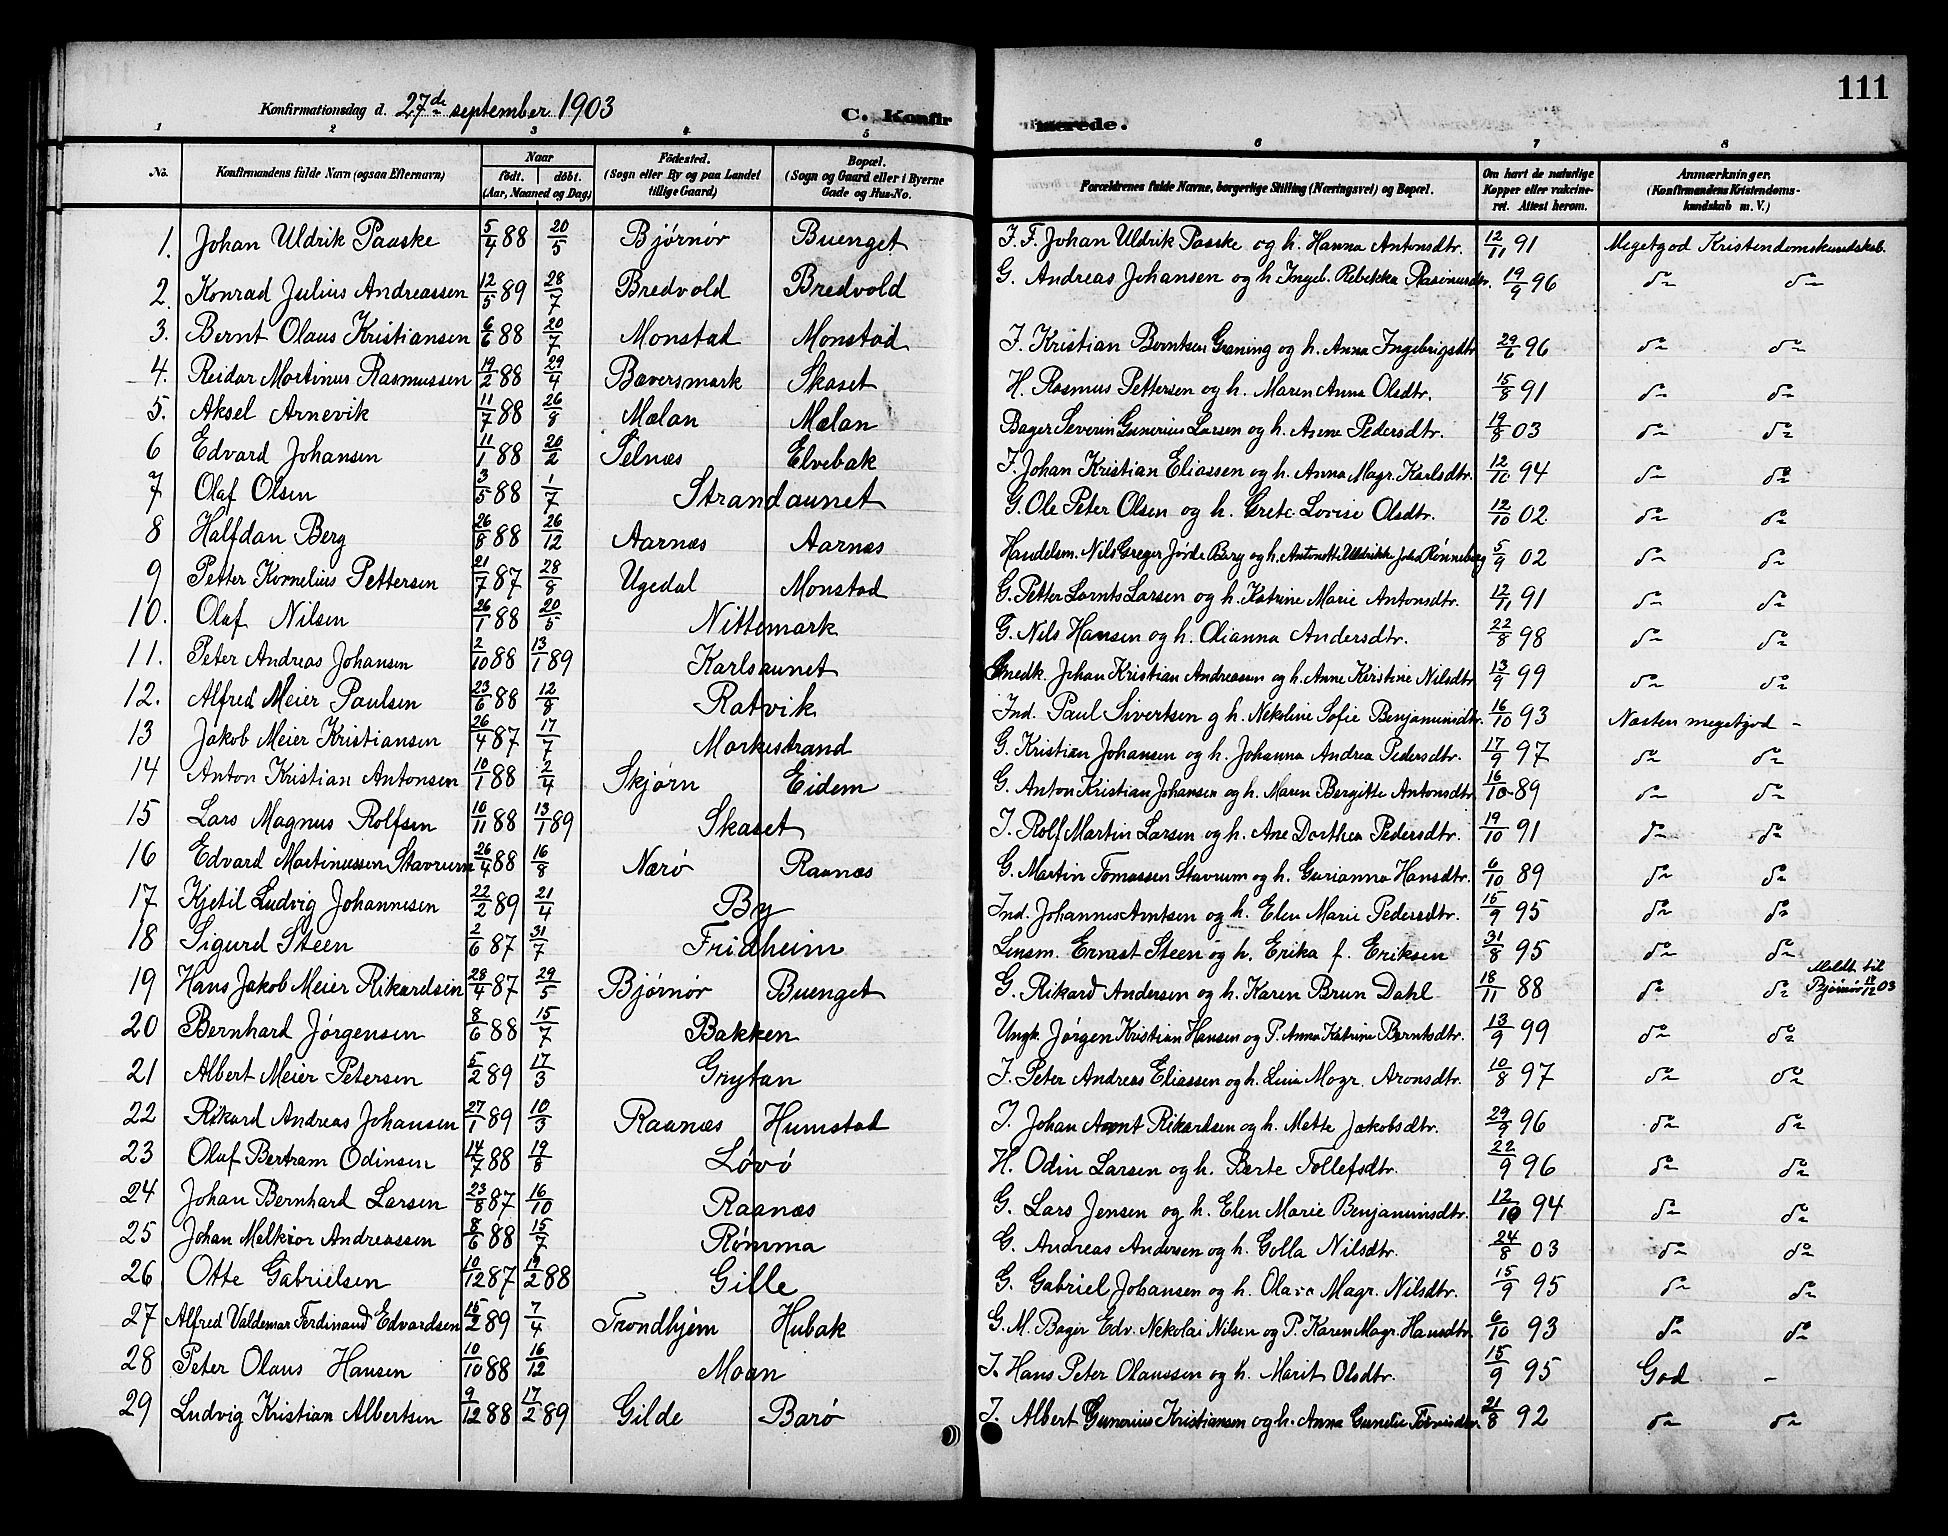 111
Konfirmationsdag d. 27de september 1903
C. Konfirmerede.
1 2 3 4 5 6 7 8
No. Konfirmandens fulde Navn (ogsaa Efternavn) Naar født. døbt. (Aar, Maaned og Dag) Fødested. (Sogn eller By og paa Landet tillige Gaard) Bopæl. (Sogn og Gaard eller i Byerne Gade og Hus-No. Forældrenes fulde Navne, borgerlige Stilling (Næringsvei) og Bopæl. Om havt de naturlige Kopper eller vakcineret. Attest herom. Anmærkninger. (Konfirmandens Kristendomskundskab m. V.)
1. Johan Uldrik Paaske 5/4 88 20/5 Bjørnør Buenget I. F. Johan Uldrik Paaske og h. Hanna Antonsdtr. 12/11 91 Megetgod Kristendomskundskab.
2. Konrad Julius Andreassen 12/5 89 28/7 Bredvold Bredvold G. Andreas Johansen og h. Ingeb. Rebekka Rasmusdtr. 19/9 96 do do
3. Bernt Olaus Kristiansen 6/6 88 20/7 Monstad Monstad I. Kristian Berntsen Graning og h. Anna Ingebrigsdtr 29/6 96 do do
4. Reidar Martinus Rasmussen 19/2 88 29/4 Bæversmark Skaset H. Rasmus Pettersen og h. Maren Anna Olsdtr. 15/8 91 do do
5. Aksel Arnevik 11/7 88 26/8 Mælan Mælan Bager Severin Gunerius Larsen og h. Asene Pedersdtr. 19/8 03 do do
6 Edvard Johansen 11/1 88 20/2 Selnæs Elvebak I. Johan Kristian Eliassen og h. Anna Magr. Karlsdtr. 12/10 94 do do
7 Olaf Olsen 3/5 88 1/7 Strandaunet G. Ole Peter Olsen og h. Grete Lovise Olsdtr. 12/10 02 do do
8 Halfdan Berg 26/8 88 26/12 Aarnæs Aarnæs Handelsm. Nils Greger Berg og h. Antonette Uldrikke Rønneberg 5/9 02 do do
9 Petter Kornelius Pettersen 21/7 87 28/8 Ugedal Monstad G. Petter Larnts Larsen og h. Katrine Marie Antonsdtr. 12/11 91 do do
10. Olaf Nilsen 26/1 88 20/5 Nittemark G. Nils Hansen og h. Olianna Andersdtr. 22/8 98 do do
11. Peter Andreas Johansen 2/10 88 13/1 89 Karlsaunet Snedk. Johan Kristian Andreasen og h. Anne Kirstine Nilsdtr 13/9 99 do do
12. Alfred Meier Paulsen 23/6 88 12/8 Ratvik Ind. Paul Sivertsen g h. Nekoline Sofie Benjaminsdtr. 16/10 93 Næsten megetgod -
13 Jakob Meier Kristiansen 26/4 87 17/7 Markestrand G. Kristian Johansen og h. Johanna Andrea Pedersdtr. 17/9 97 do do
14 Anton Kristian Antonsen 10/1 88 2/4 Skjørn Eidem G. Anton Kristian Johansen og h. Maren Bergitte Antonsdtr. 16/10 89 do do
15 Lars Magnus Rolfsen 10/11 88 13/1 89 Skaset I. Rolf Martin Larsen og h. Ane Dorthea Pedersdtr. 19/10 91 do do
16 Edvard Martinussen Stavrum 26/4 88 16/8 Nærø Raanæs G. Martin Tomassen Stavrum og h. Gurianna Hansdtr. 6/10 89 do do
17 Kjetil Ludvig Johannesen 22/2 89 21/4 By Ind. Johannes Arntsen og h. Elen Marie Pedersdtr. 15/9 95 do do
18 Sigurd Steen 2/6 87 31/7 Fridheim Lensm. Ernest Steen og h. Erika f. Eriksen 31/8 95 do do
19 Hans Jakob Meier Rikardsen 28/4 87 29/5 Bjørnør Buenget G. Rikard Andersen og h. Karen Brun Dahl 18/11 88 do do Meldt til Bjørnør 03
20 Bernhard Jørgensen 8/6 88 15/7 Bakken Ungk. Jørgen Kristian Hansen og P. Anna Katrine Berntsdtr. 13/9 99 do do
21 Albert Meier Petersen 5/2 89 17/3 Grytan I. Peter Andreas Eliassen og h. Lina Magr. Aronsdtr. 10/8 97 do do
22 Rikard Andreas Johansen 27/1 89 10/3 Raanæs Humstad I. Johan Arnt Rikardsen og h. Mette Jakobsdtr. 29/9 96 do do
23 Olaf Bertram Odinsen 14/7 88 19/8 Løvø H. Odin Larsen og h. Berte Tollefsdtr. 22/9 96 do do
24 Johan Bernhard Larsen 23/8 87 16/10 Raanæs G. Lars Jensen og h. Elen Marie Benjaminsdtr. 12/10 94 do do
25 Johan Melkior Andreassen 8/6 88 15/7 Rømma G. Andreas Andersen og h. Golla Nilsdtr. 24/8 03 do do
26 Otte Gabrielsen 10/12 87 19/2 88 Gille G. Gabriel Johansen og h. Olava Magr. Nilsdtr. 15/9 95 do do
27 Alfred Valdemar Ferdinand Edvardsen 15/2 89 7/4 Trondhjem Hubak G. M. Bager Edv. Nekolai Nilsen og P. Karen Magr. Hansdtr. 6/10 93 do do
28 Peter Olaus Hansen 10/10 88 16/12 Moan I. Hans Peter Olaussen og h. Marit Olsdtr. 15/9 95 God -
29 Ludvig Kristian Albertsen 9/12 88 17/2 89 Gilde Barø I. Albert Gunerius Kristiansen og h. Anna Gunelie 21/8 92 do do